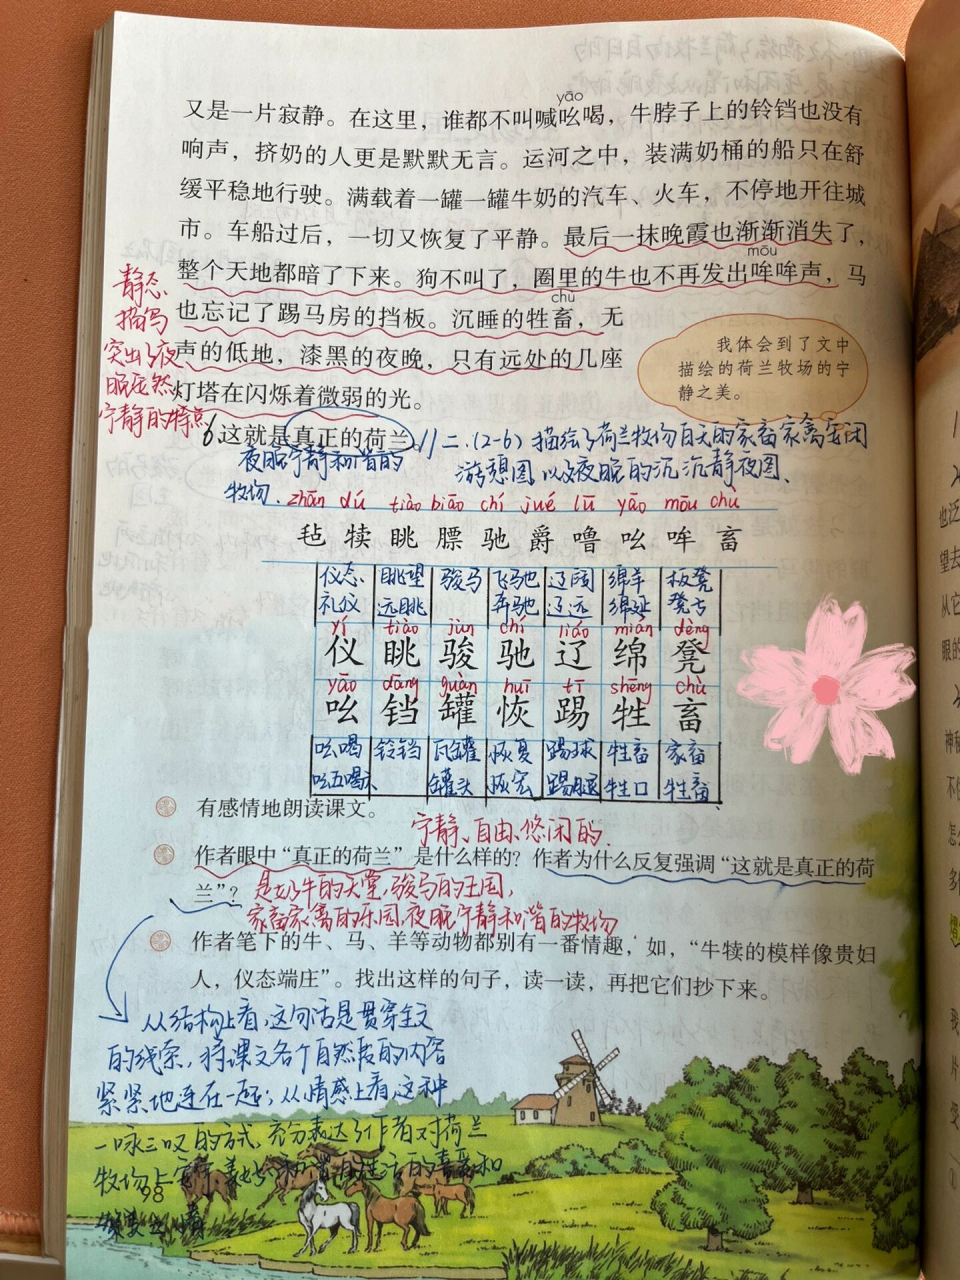 yāo
又是一片寂静。在这里，谁都不叫喊吆喝，牛脖子上的铃铛也没有
响声，挤奶的人更是默默无言。运河之中，装满奶桶的船只在舒
缓平稳地行驶。满载着一罐一罐牛奶的汽车、火车，不停地开往城
市。车船过后，一切又恢复了平静。最后一抹晚霞也渐渐消失了，
mōu
整个天地都暗了下来。狗不叫了，圈里的牛也不再发出哞哞声，马
chù
也忘记了踢马房的挡板。沉睡的牲畜，无
声的低地，漆黑的夜晚，只有远处的几座
灯塔在闪烁着微弱的光。
静态
描写
突出了夜
晚
宁静的特点
我体会到了文中
描绘的荷兰牧场的宁
静之美。
6 这就是真正的荷兰
二.(2-6) 描绘了荷兰牧场白天的家畜家禽
图,以及夜晚的沉沉静夜图.
夜晚宁静和谐的
牧场.
zhān dú tiào biāo chí jué lū yāo mōu chù
毡 犊 眺 膘 驰 爵 噜 吆 哞 畜
仪态 眺望 骏马 飞驰 辽阔 绵羊 板凳
礼仪 远眺 奔驰 辽远 绵延
yí tiào jùn chí liáo mián dèng
仪 眺 骏 驰 辽 绵 凳
yāo dāng guàn huī tī shēng chù
吆 铛 罐 恢 踢 牲 畜
吆喝 铃铛 瓦罐 恢复 踢球 牲畜 家畜
吆五喝六 罐头 恢宏 踢腿 牲口 牲畜
有感情地朗读课文。
宁静、自由、悠闲的.
作者眼中“真正的荷兰”是什么样的？作者为什么反复强调“这就是真正的荷
兰”？
是奶牛的天堂,骏马的王国,
家畜家禽的乐园,夜晚宁静和谐的牧场
作者笔下的牛、马、羊等动物都别有一番情趣，如，“牛犊的模样像贵妇
人，仪态端庄”。找出这样的句子，读一读，再把它们抄下来。
从结构上看,这句话是贯穿全文
的线索,将课文各个自然段的内容
紧紧地连在一起;从情感上看,这种
一咏三叹的方式,充分表达了作者对荷兰
牧场上
98